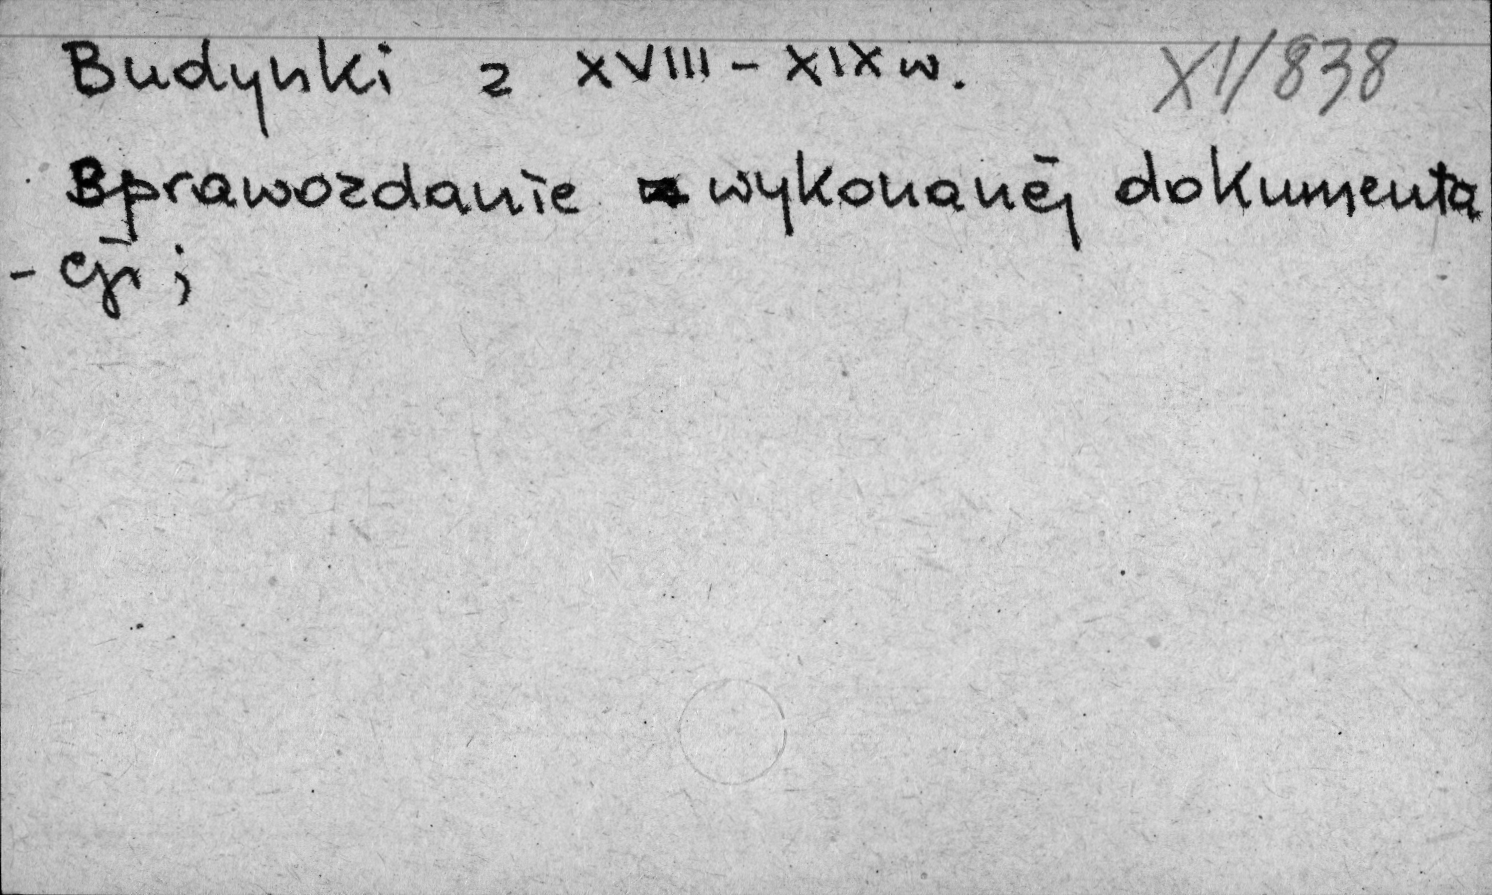 Budynki z XVIII - XIX w. XI/838
Sprawozdanie z wykonanej dokumenta
- cji ;